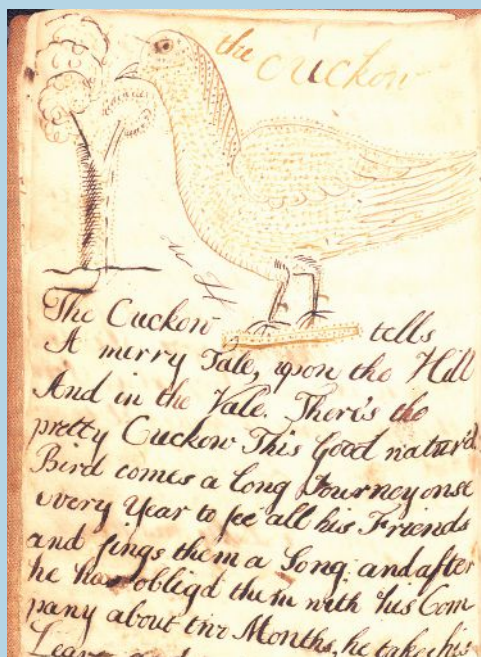 the cuckow
The Cuckow tells
A merry Tale, upon the Hill
And in the Vale. There's the
pretty Cuckow This Good natur'd
Bird comes a long Journey onse
every Year to see all his Friends
and sings them a Song: and after
he has obligd them with his Com
pany about two Months, he takes his
Leave